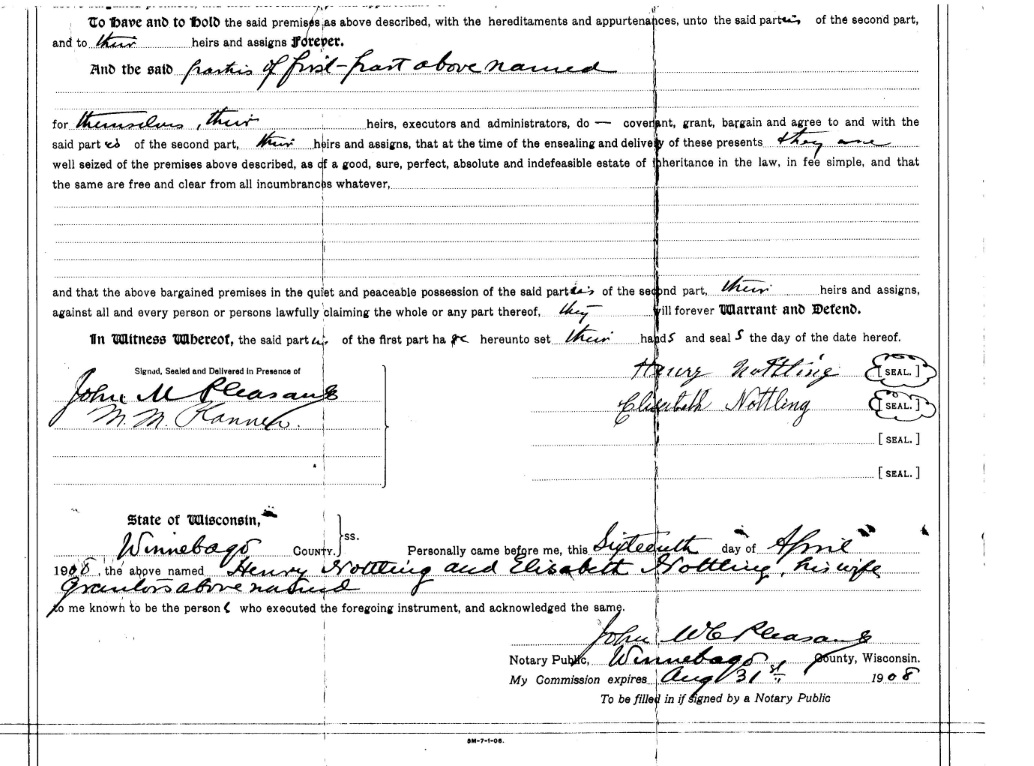 To Have and to Hold the said premises as above described, with the hereditaments and appurtenances, unto the said parties of the second part,
and to their heirs and assigns Forever.
And the said parties of first-part above named
for themselves, their heirs, executors and administrators, do — covenant, grant, bargain and agree to and with the
said parties of the second part, their heirs and assigns, that at the time of the ensealing and delivery of these presents they are
well seized of the premises above described, as of a good, sure, perfect, absolute and indefeasible estate of inheritance in the law, in fee simple, and that
the same are free and clear from all incumbrances whatever,
and that the above bargained premises in the quiet and peaceable possession of the said parties of the second part, their heirs and assigns,
against all and every person or persons lawfully claiming the whole or any part thereof, they will forever Warrant and Defend.
In Witness Whereof, the said parties of the first part have hereunto set their hands and seals the day of the date hereof.
Signed, Sealed and Delivered in Presence of
Henry Nottling [SEAL.]
John M Pleasants
Elisabeth Nottling [SEAL.]
M. M.
[SEAL.]
[SEAL.]
State of Wisconsin,
ss.
Winnebago COUNTY. Personally came before me, this Sixteenth day of April
1908, the above named Henry Nottling and Elisabeth Nottling, his wife,
Grantors above named
to me known to be the persons who executed the foregoing instrument, and acknowledged the same.
John Pleasants
Notary Public, Winnebago County, Wisconsin.
My Commission expires Aug 31st 1908
To be filled in if signed by a Notary Public
5M-7-1-06.